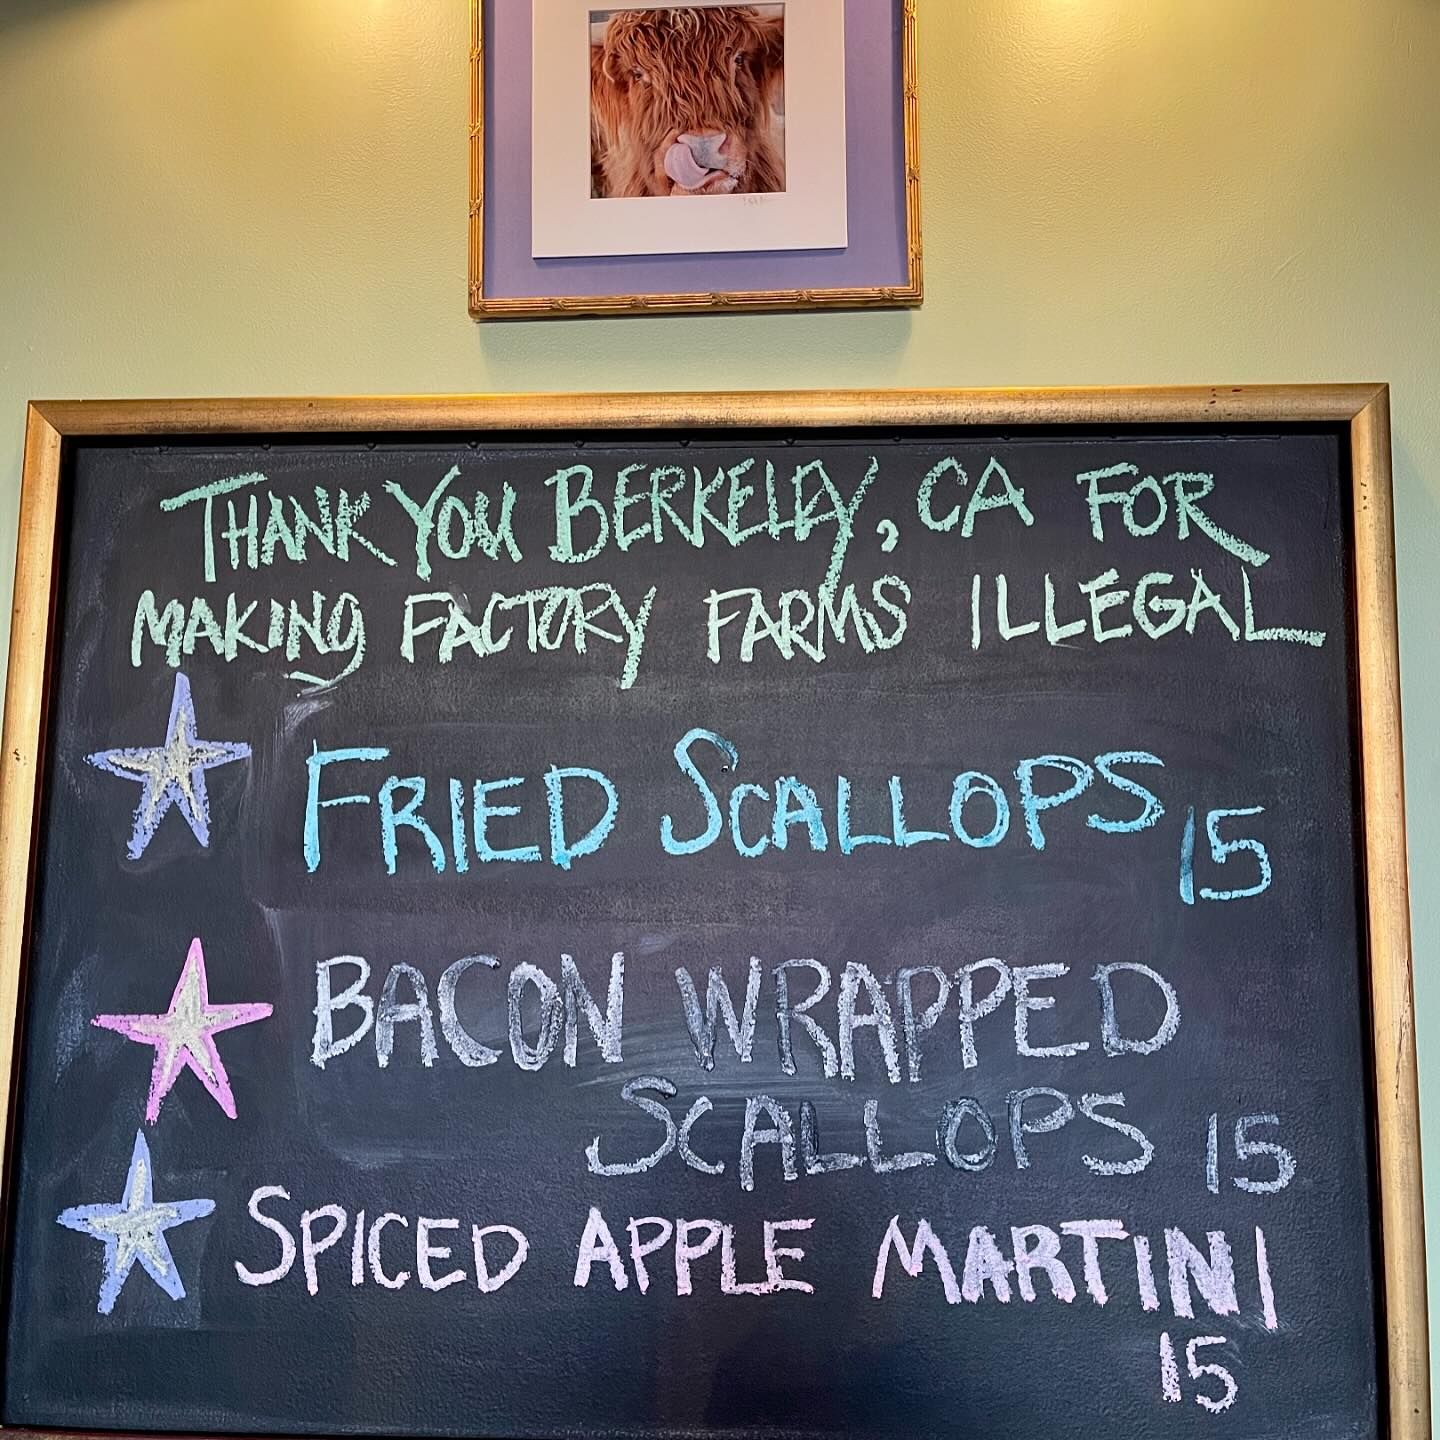 THANK YOU BERKELEY, CA FOR
MAKING FACTORY FARMS ILLEGAL
FRIED SCALLOPS 15
BACON WRAPPED
SCALLOPS 15
SPICED APPLE MARTINI
15